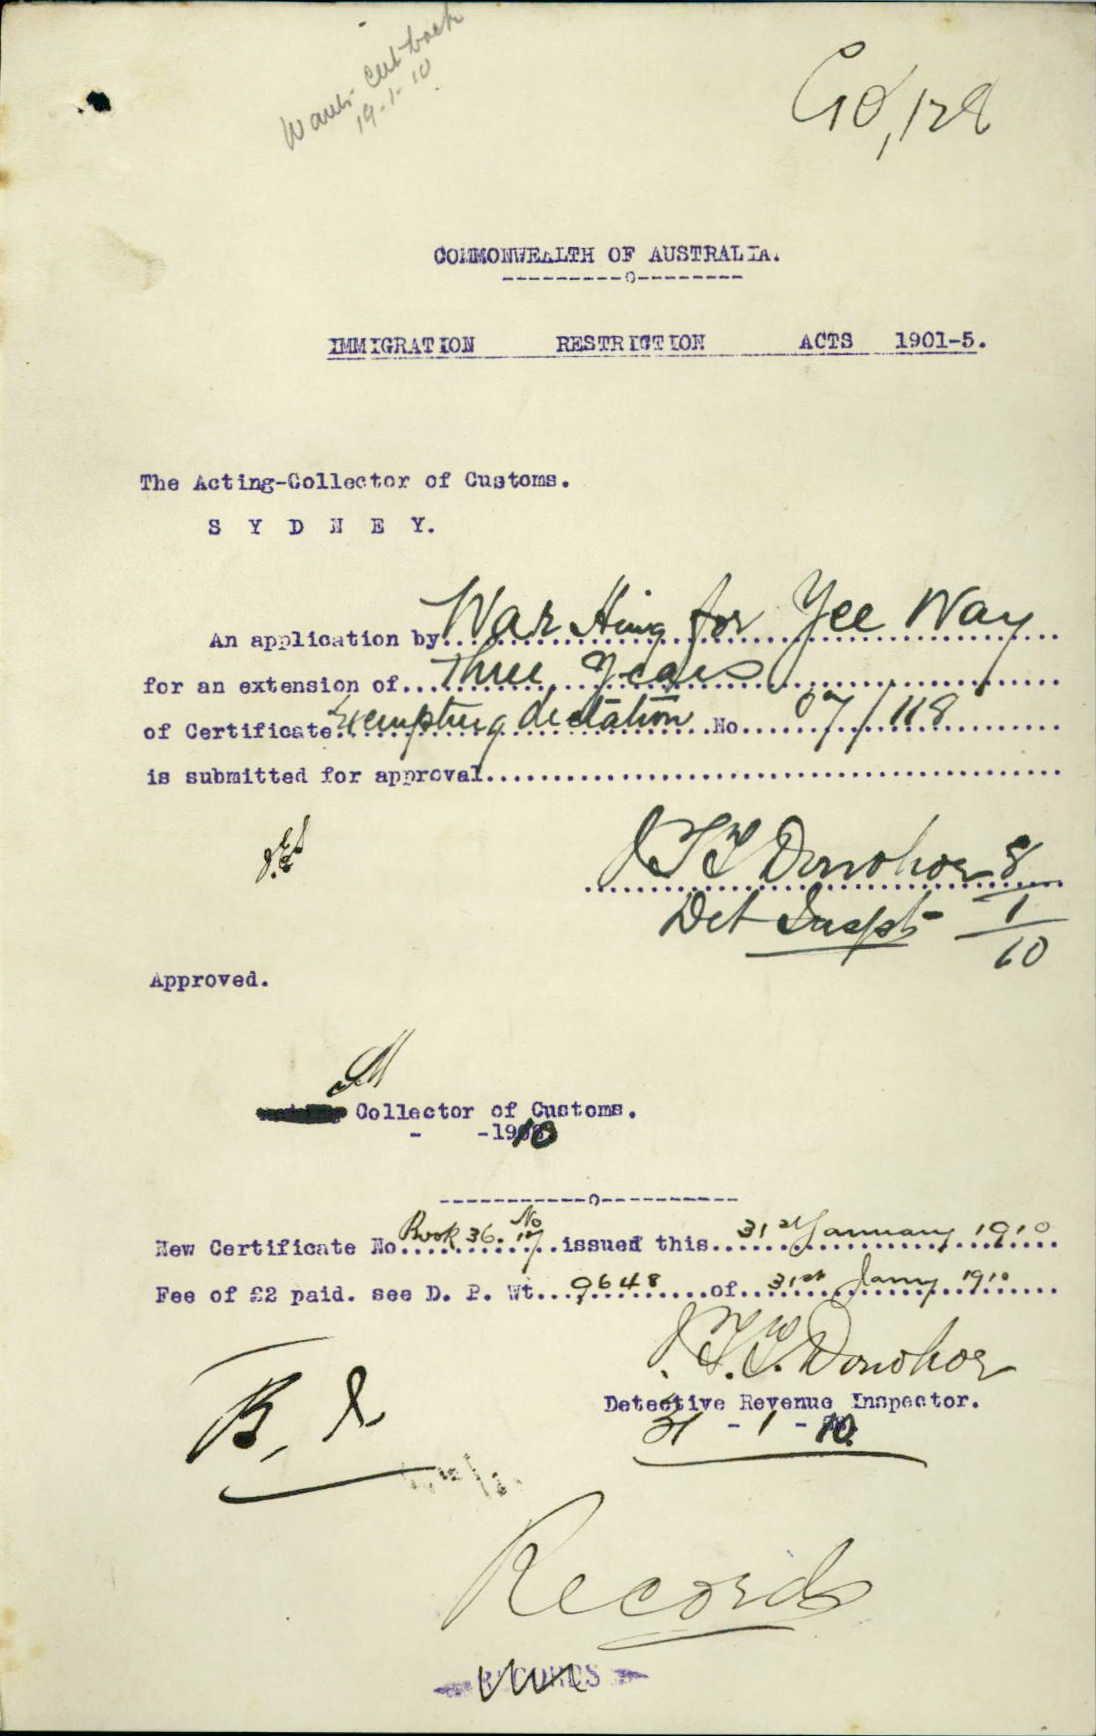 Wants Cert back
19-1-10
COMMONWEALTH OF AUSTRALIA.
---------o--------
IMMIGRATION RESTRICTION ACTS 1901-5.
The Acting-Collector of Customs.
S Y D N E Y.
An application by War Hing for Yee Way
for an extension of Three Years
of Certificate Exempting dictation No. 07/118
is submitted for approval
J T T Donohoe 8/1/10
Det Inspr
Approved.
Collector of Customs.
- -1910
-----------o----------
New Certificate No Book 36. No 17 issued this 31st January 1910
Fee of £2 paid. see D. P. Wt. 9648 of 31st Jany 1910
J. T. T. Donohoe
Detective Revenue Inspector.
31 - 1 - 10.
Records
RECORDS